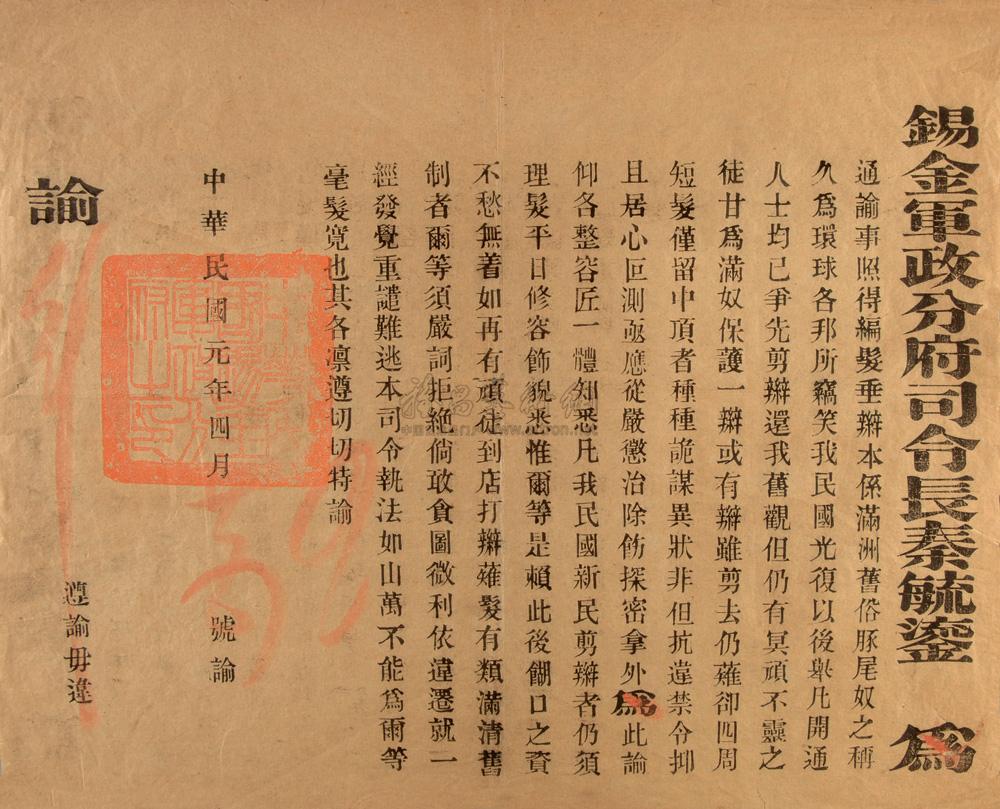 錫金軍政分府司令長秦毓鎏 爲
通諭事照得編髮垂辮本係滿洲舊俗豚尾奴之稱
久爲環球各邦所竊笑我民國光復以後舉凡開通
人士均已爭先剪辮還我舊觀但仍有冥頑不靈之
徒甘爲滿奴保護一辮或有辮雖剪去仍薙卻四周
短髮僅留中頂者種種詭謀異狀非但抗違禁令抑
且居心叵測亟應從嚴懲治除飭探密拿外爲此諭
仰各整容匠一體知悉凡我民國新民剪辮者仍須
理髮平日修容飾貌悉惟爾等是賴此後餬口之資
不愁無着如再有頑徒到店打辮薙髮有類滿清舊
制者爾等須嚴詞拒絶倘敢貪圖微利依違遷就一
經發覺重譴難逃本司令執法如山萬不能爲爾等
毫髮寬也其各凛遵切切特諭
中華民國元年四月 號諭
諭
遵諭毋違